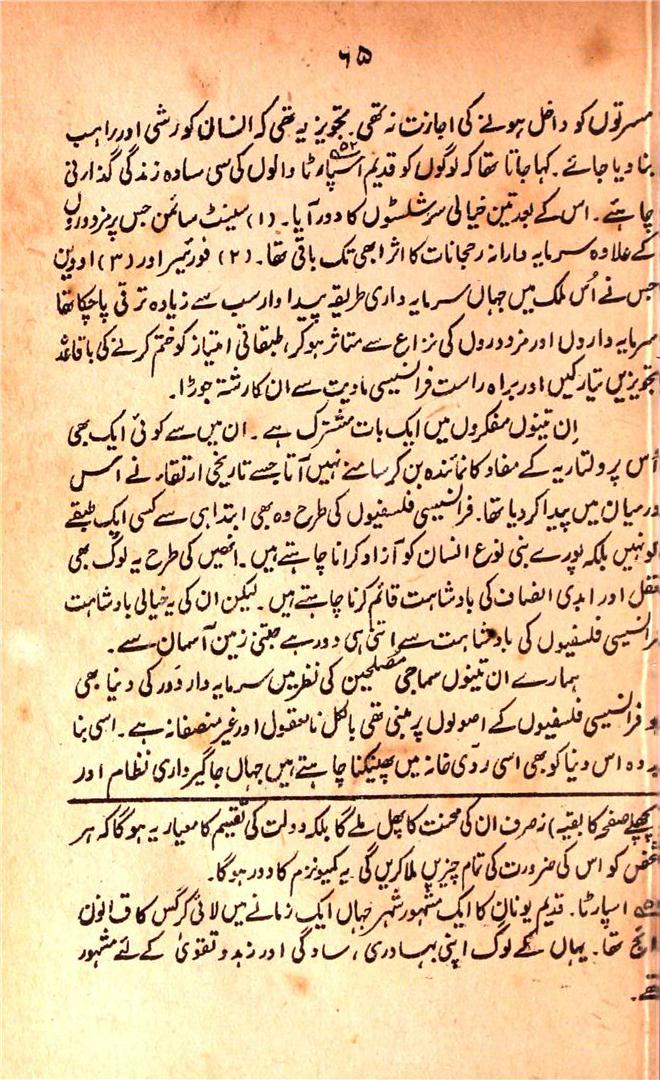 ۶۵
مسرتوں کو داخل ہونے کی اجازت نہ تھی۔ تجویز یہ تھی کہ انسان کو رشی اور راہب
بنا دیا جائے۔ کہا جاتا تھا کہ لوگوں کو قدیم اسپارٹا والوں کی سی سادہ زندگی گذارنی
چاہئے۔ اس کے بعد تین خیالی سوشلسٹوں کا دور آیا۔ (۱) سینٹ سائمن جس پر مزدوروں
کے علاوہ سرمایہ دارانہ رحجانات کا اثر ابھی تک باقی تھا۔ (۲) فورئیر اور (۳) اووین
جس نے اُس ملک میں جہاں سرمایہ داری طریقہ پیداوار سب سے زیادہ ترقی پا چکا تھا
سرمایہ داروں اور مزدوروں کی نزاع سے متاثر ہو کر، طبقاتی امتیاز کو ختم کرنے کی باقاعدہ
تجویزیں تیار کیں اور براہ راست فرانسیسی مادیت سے ان کا رشتہ جوڑا۔
اِن تینوں مفکروں میں ایک بات مشترک ہے۔ ان میں سے کوئی ایک بھی
اُس پرولتاریہ کے مفاد کا نمائندہ بن کر سامنے نہیں آتا جسے تاریخی ارتقاء نے اس
درمیان میں پیدا کر دیا تھا۔ فرانسیسی فلسفیوں کی طرح وہ بھی ابتدا ہی سے کسی ایک طبقے
کو نہیں بلکہ پورے بنی نوع انسان کو آزاد کرانا چاہتے ہیں۔ انھیں کی طرح یہ لوگ بھی
عقل اور ابدی انصاف کی بادشاہت قائم کرنا چاہتے ہیں۔ لیکن ان کی یہ خیالی بادشاہت
فرانسیسی فلسفیوں کی بادشاہت سے اتنی ہی دور ہے جتنی زمین آسمان سے۔
ہمارے ان تینوں سماجی مصلحین کی نظر میں سرمایہ دار دَور کی دنیا بھی
جو فرانسیسی فلسفیوں کے اصولوں پر مبنی تھی بالکل نامعقول اور غیر منصفانہ ہے۔ اسی بنا
پر وہ اس دنیا کو بھی اسی ردّی خانہ میں پھینکنا چاہتے ہیں جہاں جاگیرداری نظام اور
پچھلے صفحے کا بقیہ) نہ صرف ان کی محنت کا پھل ملے گا بلکہ دولت کی تقسیم کا معیار یہ ہوگا کہ ہر
شخص کو اس کی ضرورت کی تمام چیزیں ملا کریں گی۔ یہ کمیونزم کا دور ہوگا۔
اسپارٹا۔ قدیم یونان کا ایک مشہور شہر جہاں ایک زمانے میں لائی کرگس کا قانون
رائج تھا۔ یہاں کے لوگ اپنی بہادری، سادگی اور زہد و تقویٰ کے لئے مشہور
تھے۔